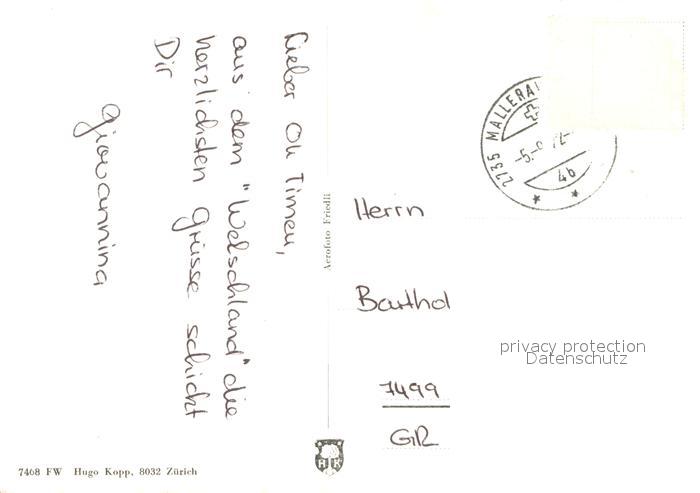 Lieber Oh Timeu,
aus dem "Welschland" die
herzlichsten Grüsse schickt
Dir
Giovannina
Aerofoto Friedli
2735 MALLERA
-5.-9 72-
4b
Herrn
Barthol
7499
GR
privacy protection
Datenschutz
HK
7468 FW Hugo Kopp, 8032 Zürich